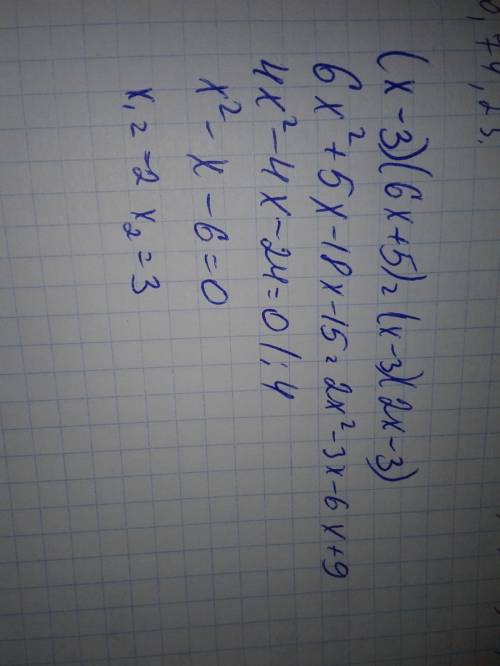 0, 74, 23.
(x-3)(6x+5)=(x-3)(2x-3)
6x²+5x-18x-15=2x²-3x-6x+9
4x²-4x-24=0 |:4
x²-x-6=0
x₁=-2 x₂=3